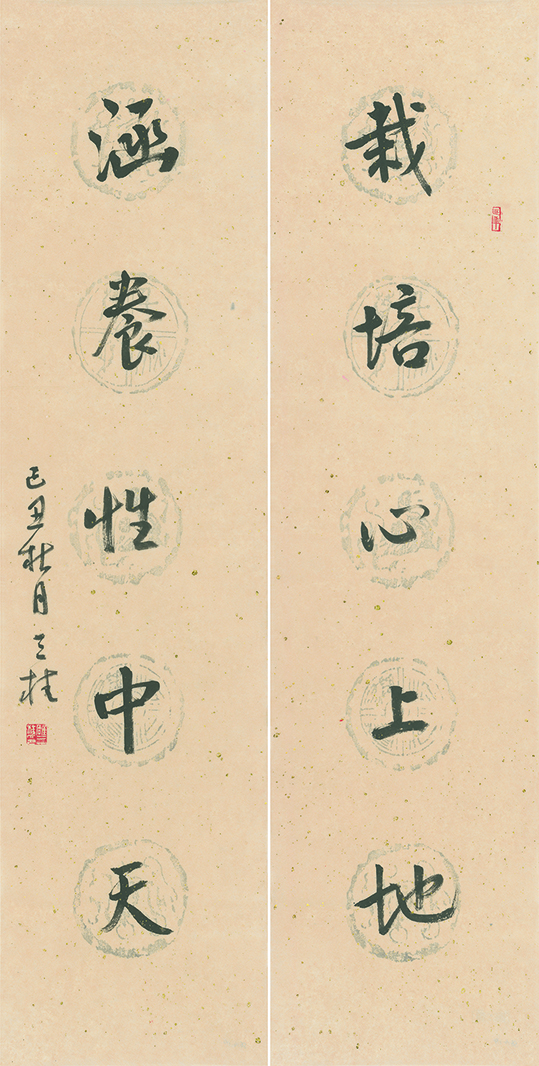 栽培心上地
涵養性中天
己丑秋月
桂